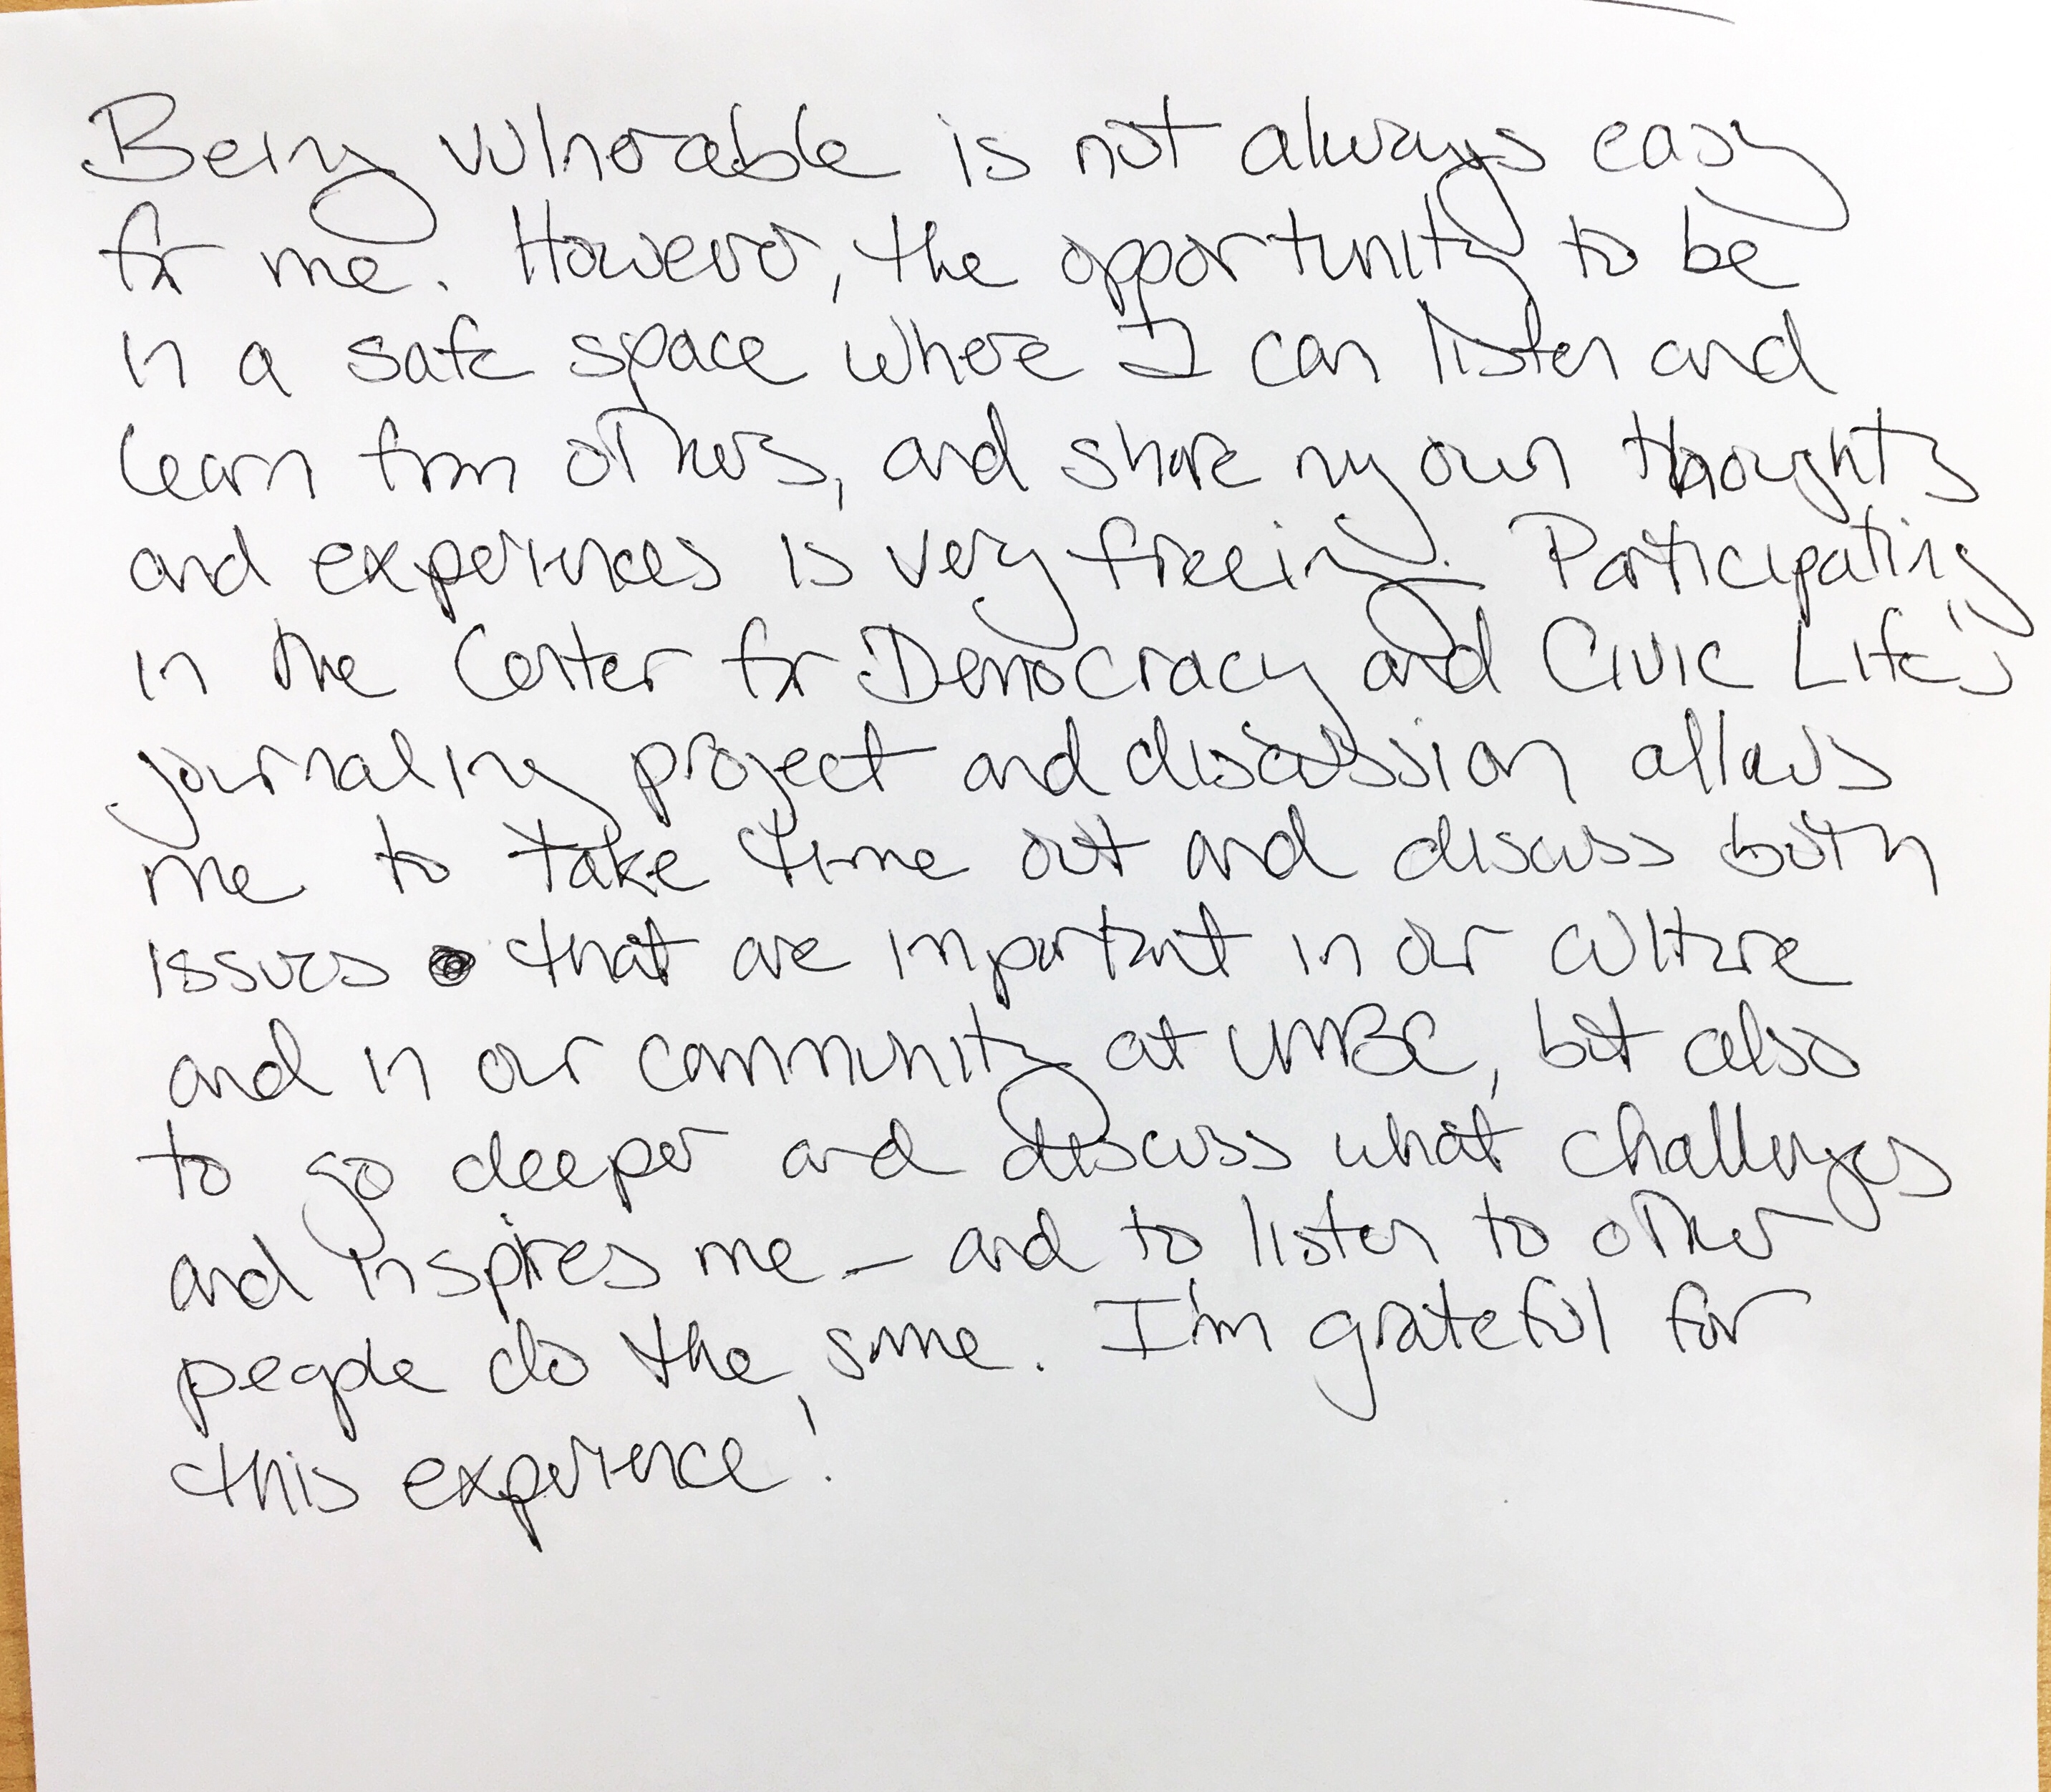 Being vulnerable is not always easy
for me. However, the opportunity to be
in a safe space where I can listen and
learn from others, and share my own thoughts
and experiences is very freeing. Participating
in the Center for Democracy and Civic Life's
journaling project and discussion allows
me to take time out and discuss both
issues that are important in our culture
and in our community at UMBC, but also
to go deeper and discuss what challenges
and inspires me – and to listen to other
people do the same. I'm grateful for
this experience!